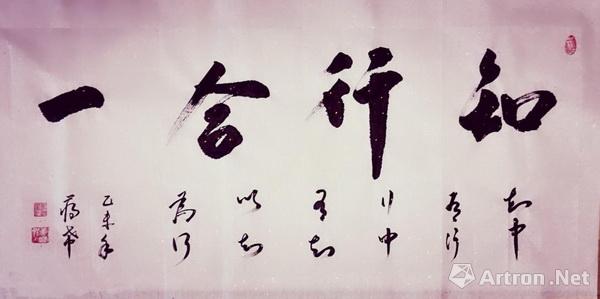 知行合一
知中
有行
行中
有知
以知
為行
乙未年
Artron.Net